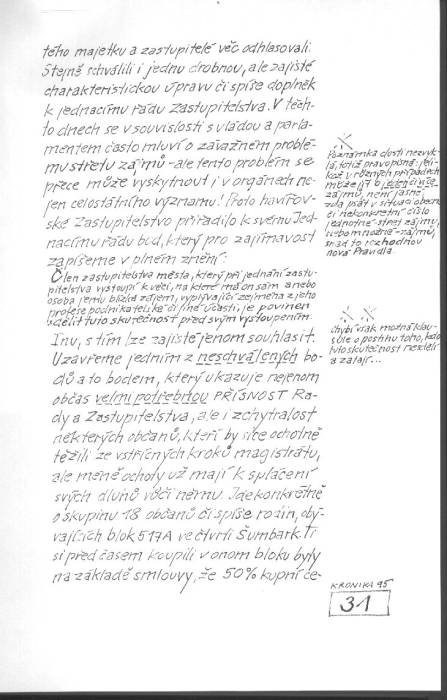 tého majetku a zastupitelé věc odhlasovali.
Stejně schválili i jednu drobnou, ale zajisté
charakteristickou úpravu či spíše doplněk
k jednacímu řádu Zastupitelstva. V těch-
to dnech se v souvislosti s vládou a parla-
mentem často mluví o závažném problé-
mu střetu zájmů - ale tento problém se
přece může vyskytnout i v orgánech ne-
jen celostátního významu! Proto havířov-
ské Zastupitelstvo přiřadilo k svému Jed-
nacímu řádu bod, který pro zajímavost
zapíšeme v plném znění:
Člen zastupitelstva města, který při jednání zastu-
pitelstva vystoupí k věci, na které má on sám anebo
osoba jemu blízká zájem, vyplývající zejména z jeho
profese podnikatelské či jiné účasti, je povinen
sdělit tuto skutečnost před svým vystoupením.
Inu, s tím lze zajisté jenom souhlasit.
Uzavřeme jedním z neschválených bo-
dů a to bodem, který ukazuje nejenom
občas velmi potřebnou PŘÍSNOST Ra-
dy a Zastupitelstva, ale i zchytralost
některých občanů, kteří by sice ochotně
těžili ze vstřícných kroků magistrátu,
ale méně ochoty už mají k splácení
svých dluhů vůči němu. Jde konkrétně
o skupinu 18 občanů či spíše rodin, obý-
vajících blok 517A ve čtvrti Šumbark. Ti
si před časem koupili v onom bloku byty
na základě smlouvy, že 50% kupní ce-
Poznámka dosti nezvyk-
lá, totiž pravopisná: jeli-
kož v různých případech
může jít o jeden či více
zájmů, není jasné,
zda psát v situaci obecné
či nekonkrétní číslo
jednotné - střet zájmu,
nebo množné - zájmů,
snad to rozhodnou
nová Pravidla.
chybí však možná klau-
sule o postihu toho, kdo
tuto skutečnost nesdělí
a zatají...
KRONIKA 95
31